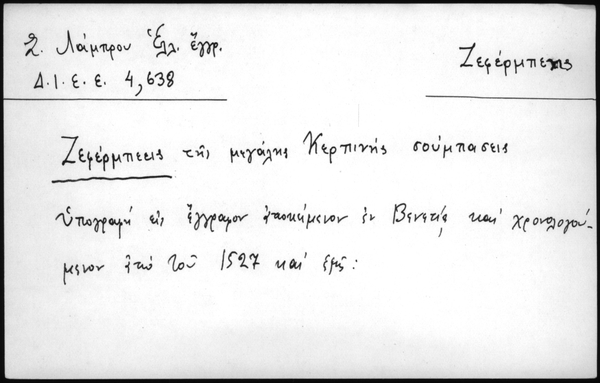 Σ. Λάμπρου Ἑλλ. ἔγγρ.
Δ.Ι.Ε.Ε. 4,638
Ζεφέρμπεης
Ζεφέρμπεεις τῆς μεγάλης Κερπινής σούμπασεις
Ὑπογραφή εἰς ἔγγραφον ἀποκείμενον ἐν Βενετίᾳ καί χρονολογού-
μενον ἀπό τοῦ 1527 καί ἑξῆς: